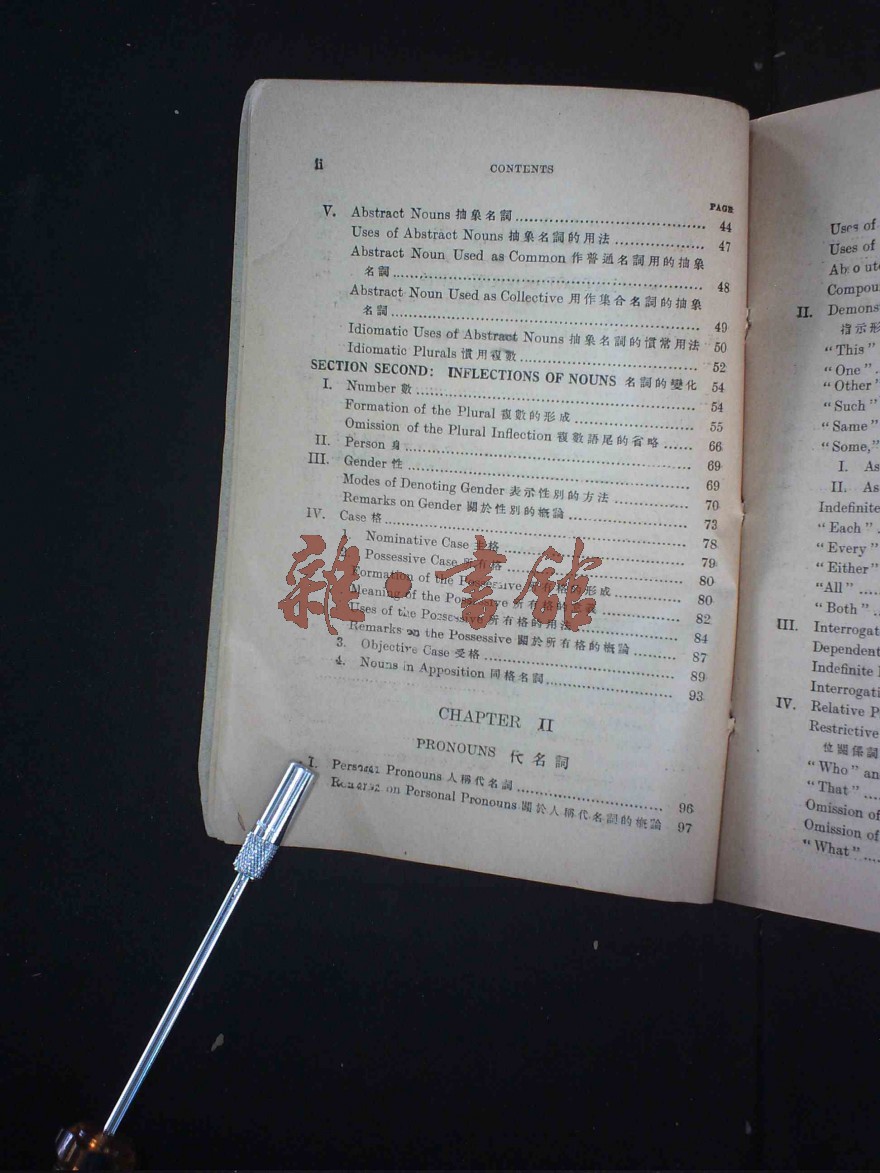 ii
CONTENTS
PAGE
V. Abstract Nouns 抽象名詞 44
Uses of Abstract Nouns 抽象名詞的用法 47
Abstract Noun Used as Common 作普通名詞用的抽象
名詞 48
Abstract Noun Used as Collective 用作集合名詞的抽象
名詞 49
Idiomatic Uses of Abstract Nouns 抽象名詞的慣常用法 50
Idiomatic Plurals 慣用複數 52
SECTION SECOND: INFLECTIONS OF NOUNS 名詞的變化 54
I. Number 數 54
Formation of the Plural 複數的形成 55
Omission of the Plural Inflection 複數語尾的省略 66
II. Person 身 69
III. Gender 性 69
Modes of Denoting Gender 表示性別的方法 70
Remarks on Gender 關於性別的概論 73
IV. Case 格 78
1. Nominative Case 主格 79
2. Possessive Case 所有格 80
Formation of the Possessive 所有格的形成 80
Meaning of the Possessive 所有格的意義 82
Uses of the Possessive 所有格的用法 84
Remarks on the Possessive 關於所有格的概論 87
3. Objective Case 受格 89
4. Nouns in Apposition 同格名詞 93
CHAPTER II
PRONOUNS 代名詞
I. Personal Pronouns 人稱代名詞 96
Remarks on Personal Pronouns 關於人稱代名詞的概論 97
雜·書館
Uses of
Uses of
II.
指示形
"This"
"One"
"Other"
"Such"
"Same"
"Some,"
I. As
II. As
Indefinite
"Each"
"Every"
"Either"
"All"
"Both"
III.
Dependent
Indefinite
IV. Relative P
Restrictive
位關係詞
"Who" an
"That"
Omission of
Omission of
"What"